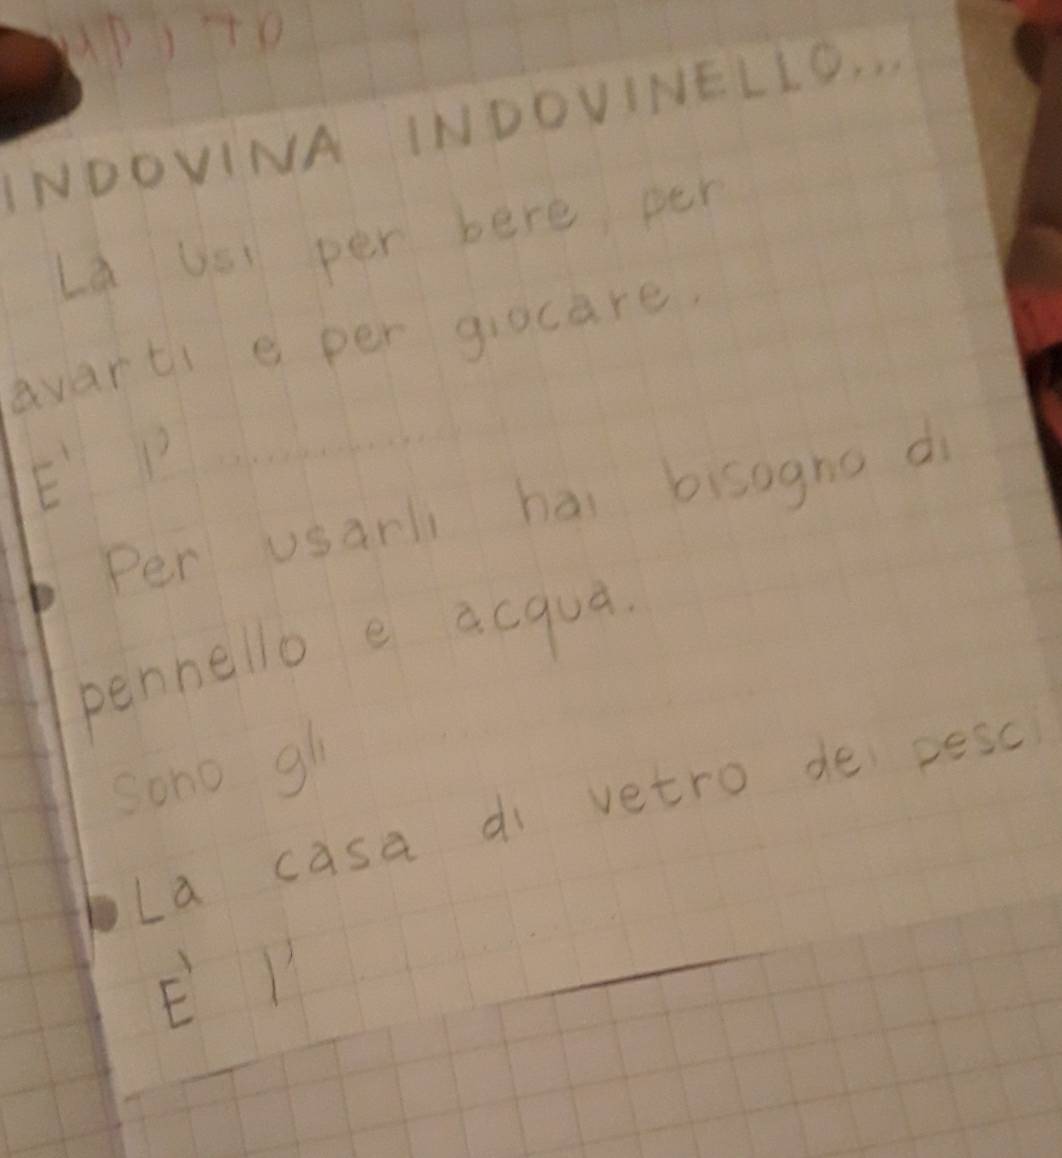 INDOVINA INDOVINELLO...
La usi per bere, per
avarti e per giocare.
E' l' ..............
Per usarli hai bisogno di
pennello e acqua.
sono gli
La casa di vetro dei pesci
È l'